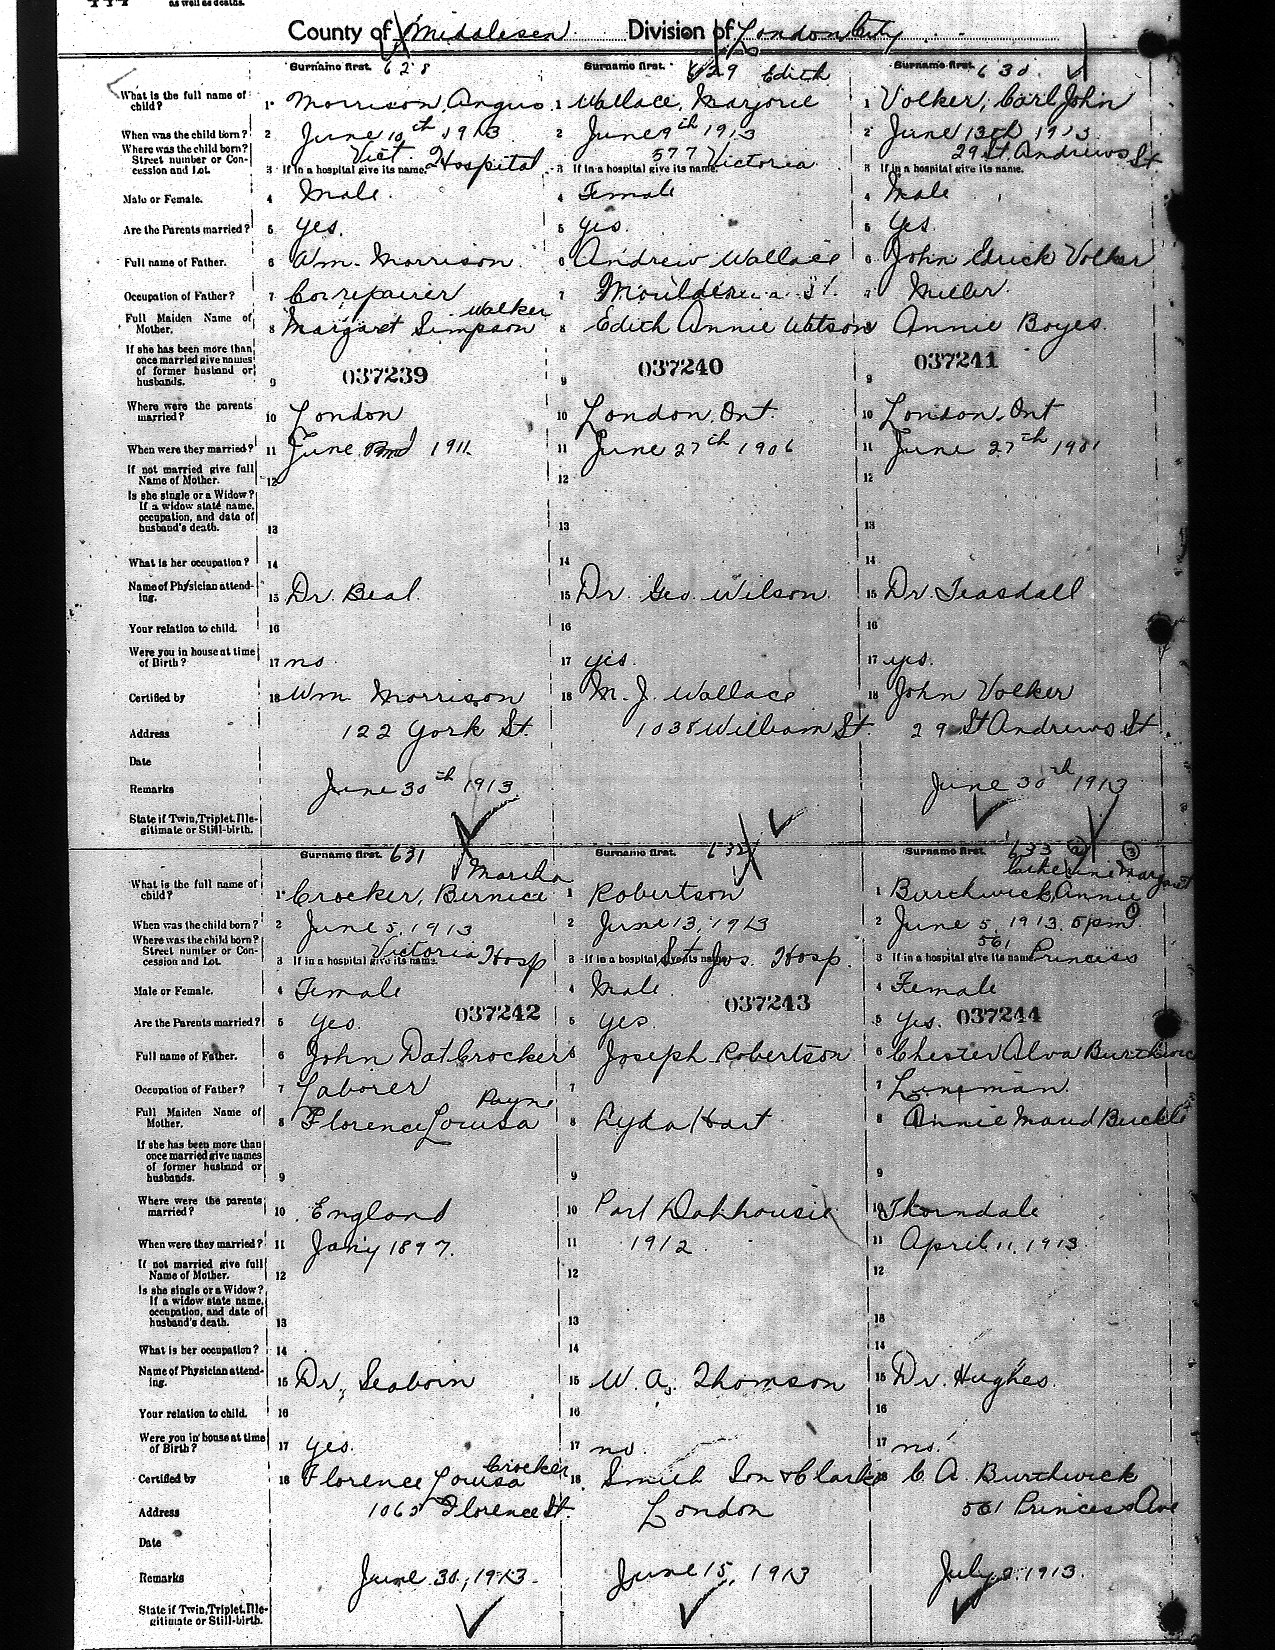 as well as deaths.
County of Middlesex Division of London City
Surname first. 628 Surname first. 629 Edith Surname first. 630
What is the full name of child? 1 Morrison, Angus 1 Wallace, Marjorie 1 Volker, Carl John
When was the child born? 2 June 10th 1913 2 June 9th 1913 2 June 13th 1913
Where was the child born? Vict. 577 29 St. Andrews St.
Street number or Concession and Lot. 3 If in a hospital give its name. Hospital 3 If in a hospital give its name. Victoria 3 If in a hospital give its name.
Male or Female. 4 Male. 4 Female 4 Male
Are the Parents married? 5 yes. 5 yes. 5 yes.
Full name of Father. 6 Wm. Morrison 6 Andrew Wallace 6 John Edrick Volker
Occupation of Father? 7 Car repairer 7 7 Miller
Full Maiden Name of Mother. 8 Margaret Simpson Walker 8 Edith Annie Watson 8 Annie Boyes.
If she has been more than once married give names of former husband or husbands. 9 037239 9 037240 9 037241
Where were the parents married? 10 London 10 London, Ont. 10 London, Ont
When were they married? 11 June 1911. 11 June 27th 1906 11 June 27th 1901
If not married give full Name of Mother. 12 12 12
Is she single or a Widow? If a widow state name, occupation, and date of husband's death. 13 13 13
What is her occupation? 14 14 14
Name of Physician attending. 15 Dr. Beal 15 Dr. Geo. Wilson. 15 Dr. Teasdall
Your relation to child. 16 16 16
Were you in house at time of Birth? 17 no. 17 yes. 17 yes.
Certified by 18 Wm Morrison 18 M. J. Wallace 18 John Volker
Address 122 York St. 1038 William St. 29 St Andrews St.
Date
Remarks June 30th 1913. June 30th 1913
State if Twin, Triplet, Illegitimate or Still-birth.
Surname first. 631 Surname first. 632 Surname first. 633
What is the full name of child? 1 Crocker, Bernice Marsha 1 Robertson 1 Burthwick, Annie Catherine Margaret
When was the child born? 2 June 5, 1913 2 June 13, 1913 2 June 5, 1913. 5 pm
Where was the child born? Victoria St. 561
Street number or Concession and Lot. 3 If in a hospital give its name. Hosp 3 If in a hospital give its name. Jos. Hosp. 3 If in a hospital give its name. Princess
Male or Female. 4 Female 4 Male 4 Female
037242 037243
Are the Parents married? 5 yes. 5 yes. 5 yes. 037244
Full name of Father. 6 John Dat Crocker 6 Joseph Robertson 6 Chester Alva Burthwick
Occupation of Father? 7 Laborer 7 7 Lineman.
Full Maiden Name of Mother. 8 Florence Louisa Payne 8 Ayda Hart 8 Annie Maud Buckle
If she has been more than once married give names of former husband or husbands. 9 9 9
Where were the parents married? 10 England 10 Port Dalhousie 10 Thorndale
When were they married? 11 Jan'y 1897. 11 1912 11 April 11, 1913
If not married give full Name of Mother. 12 12 12
Is she single or a Widow? If a widow state name, occupation, and date of husband's death. 13 13 13
What is her occupation? 14 14 14
Name of Physician attending. 15 Dr. Seaborn 15 W. A. Thomson 15 Dr. Hughes.
Your relation to child. 16 16 16
Were you in house at time of Birth? 17 yes. 17 no. 17 no.
Certified by 18 Florence Louisa Crocker 18 Smith Son & Clarke 18 C A. Burthwick
Address 1065 Florence St. London 561 Princess Ave
Date
Remarks June 30, 1913. June 15, 1913 July 2. 1913.
State if Twin, Triplet, Illegitimate or Still-birth.